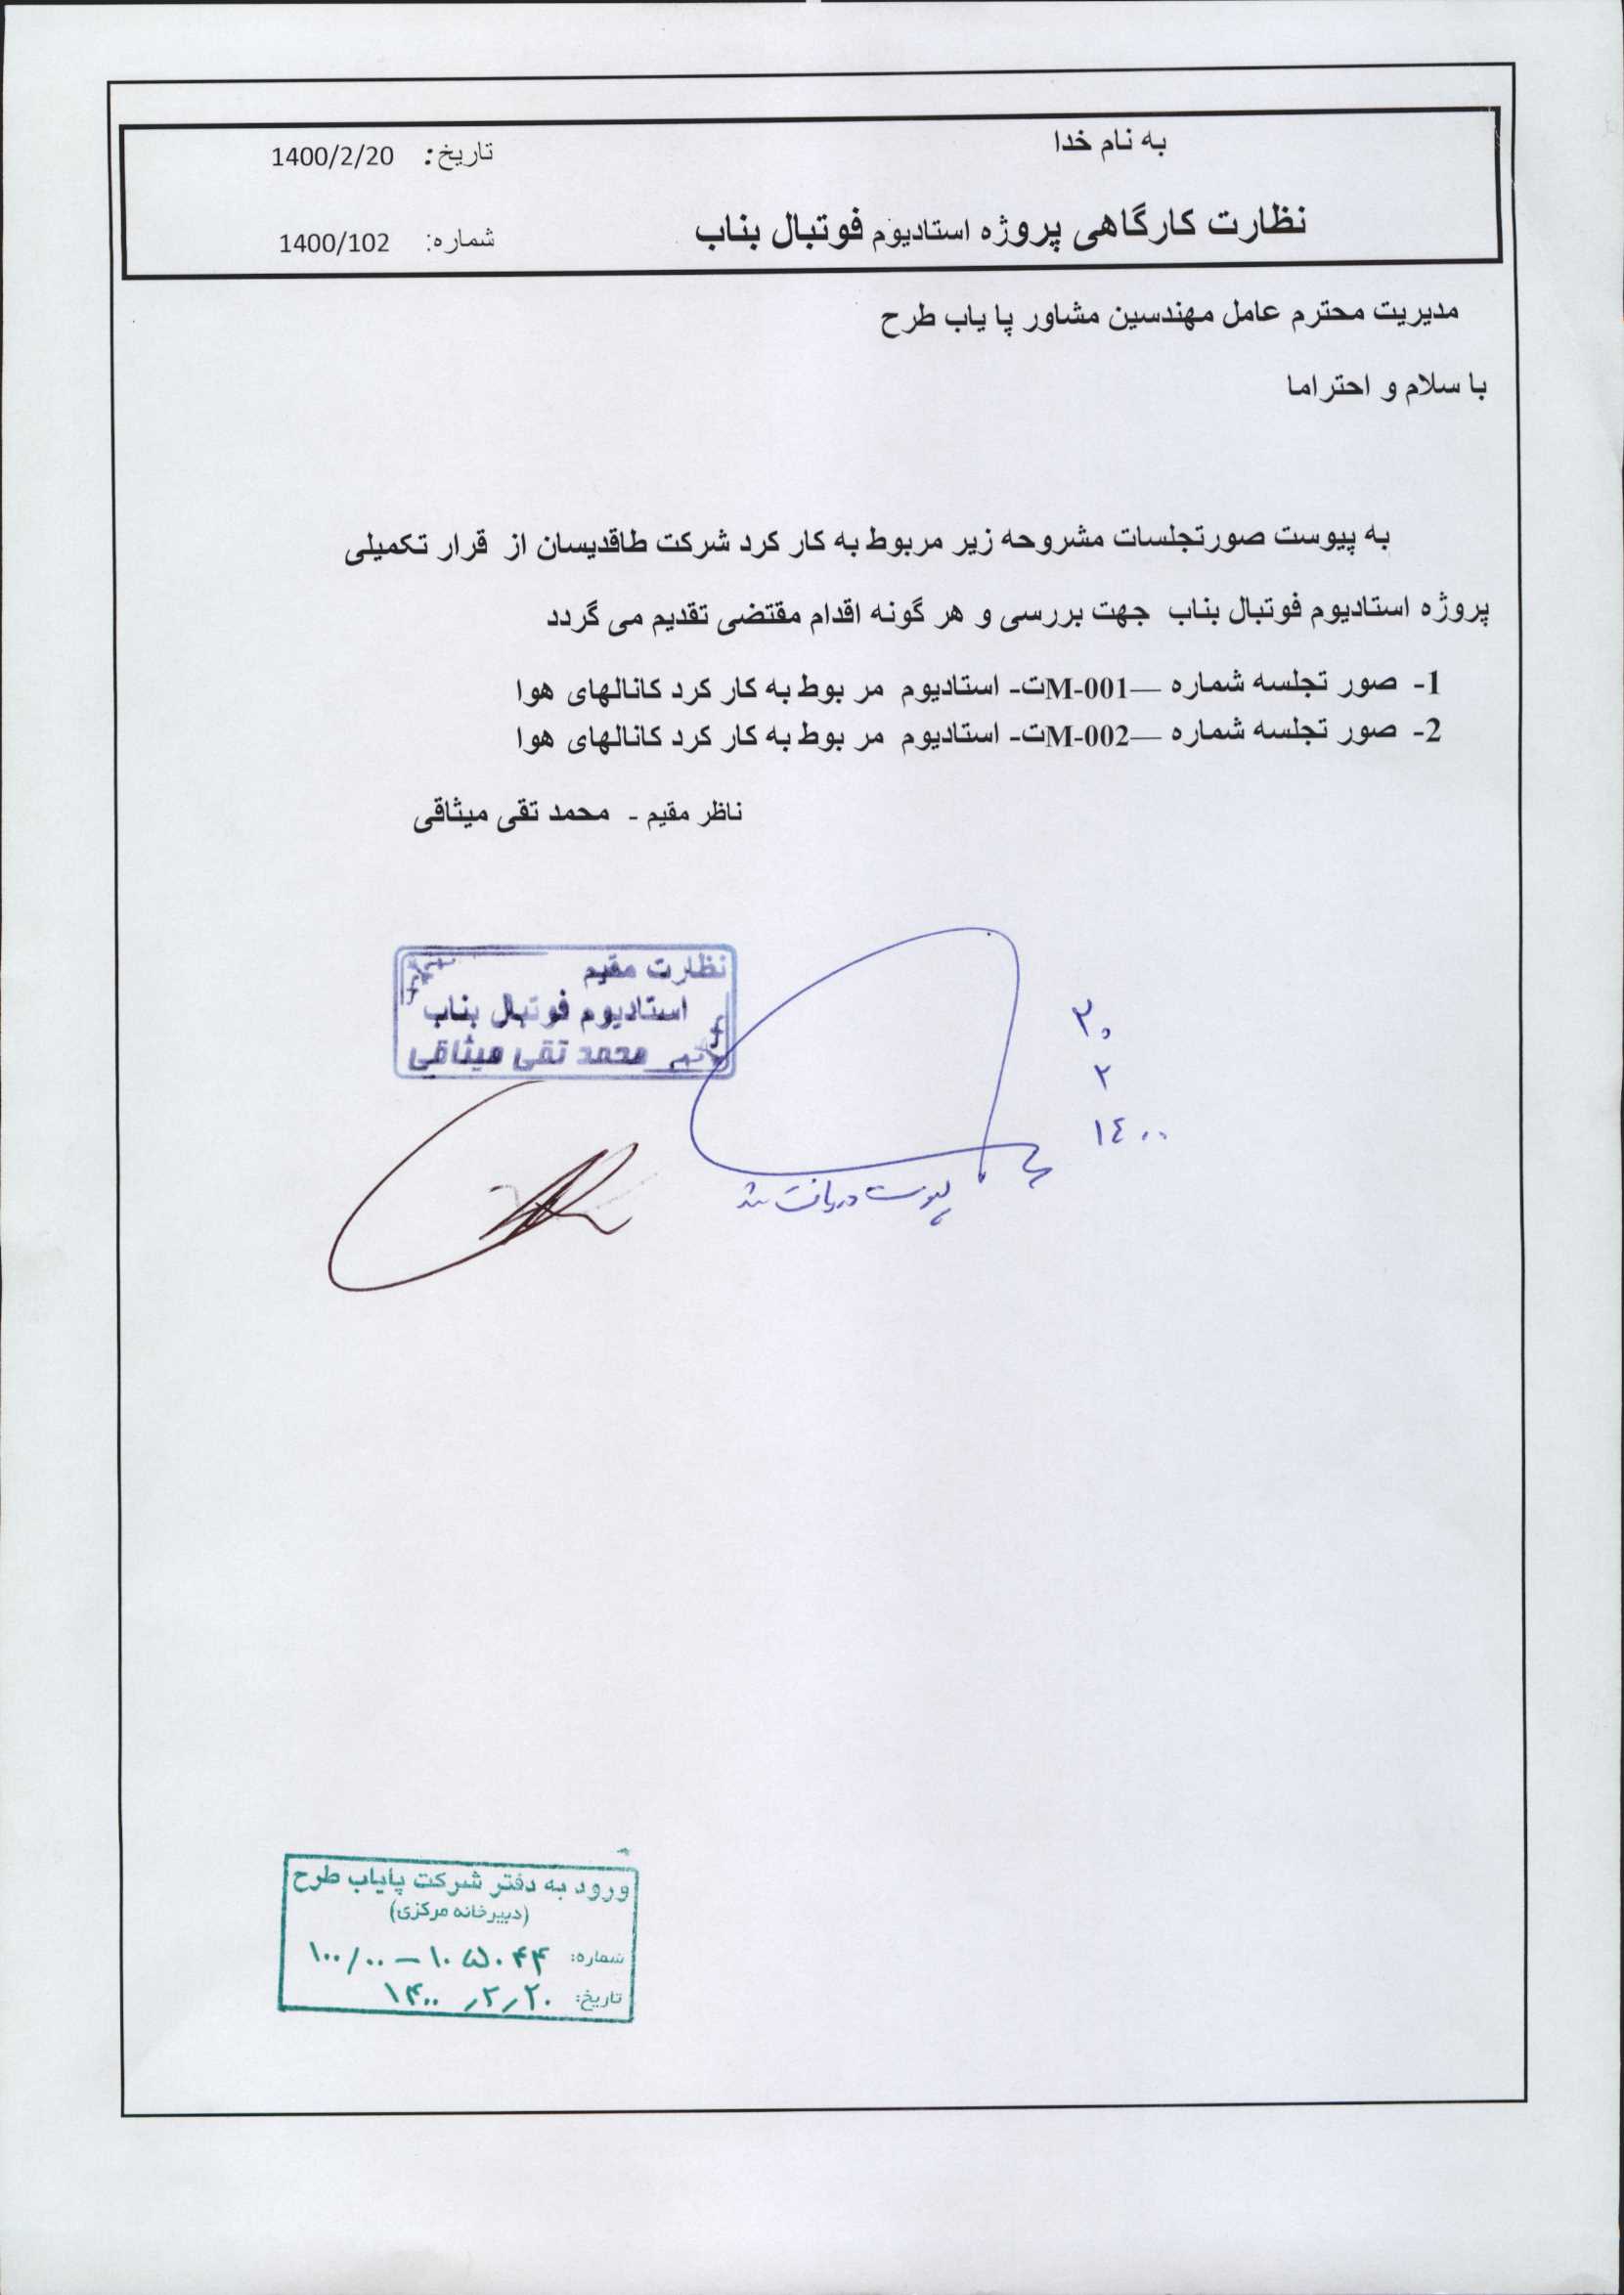 به نام خدا
تاریخ: 1400/2/20
نظارت کارگاهی پروژه استادیوم فوتبال بناب
شماره: 1400/102
مدیریت محترم عامل مهندسین مشاور پا یاب طرح
با سلام و احتراما
به پیوست صورتجلسات مشروحه زیر مربوط به کار کرد شرکت طاقدیسان از قرار تکمیلی
پروژه استادیوم فوتبال بناب جهت بررسی و هر گونه اقدام مقتضی تقدیم می گردد
1- صور تجلسه شماره —M-001ت- استادیوم مر بوط به کار کرد کانالهای هوا
2- صور تجلسه شماره —M-002ت- استادیوم مر بوط به کار کرد کانالهای هوا
ناظر مقیم - محمد تقی میثاقی
نظارت مقیم
استادیوم فوتبال بناب
محمد تقی میثاقی
۲۰
۲
۱٤۰۰
پیوست دریافت شد
ورود به دفتر شرکت پایاب طرح
(دبیرخانه مرکزی)
شماره: ۱۰۰/۰۰ – ۱۰۵۰۴۴
تاریخ: ۱۴۰۰/۲/۲۰